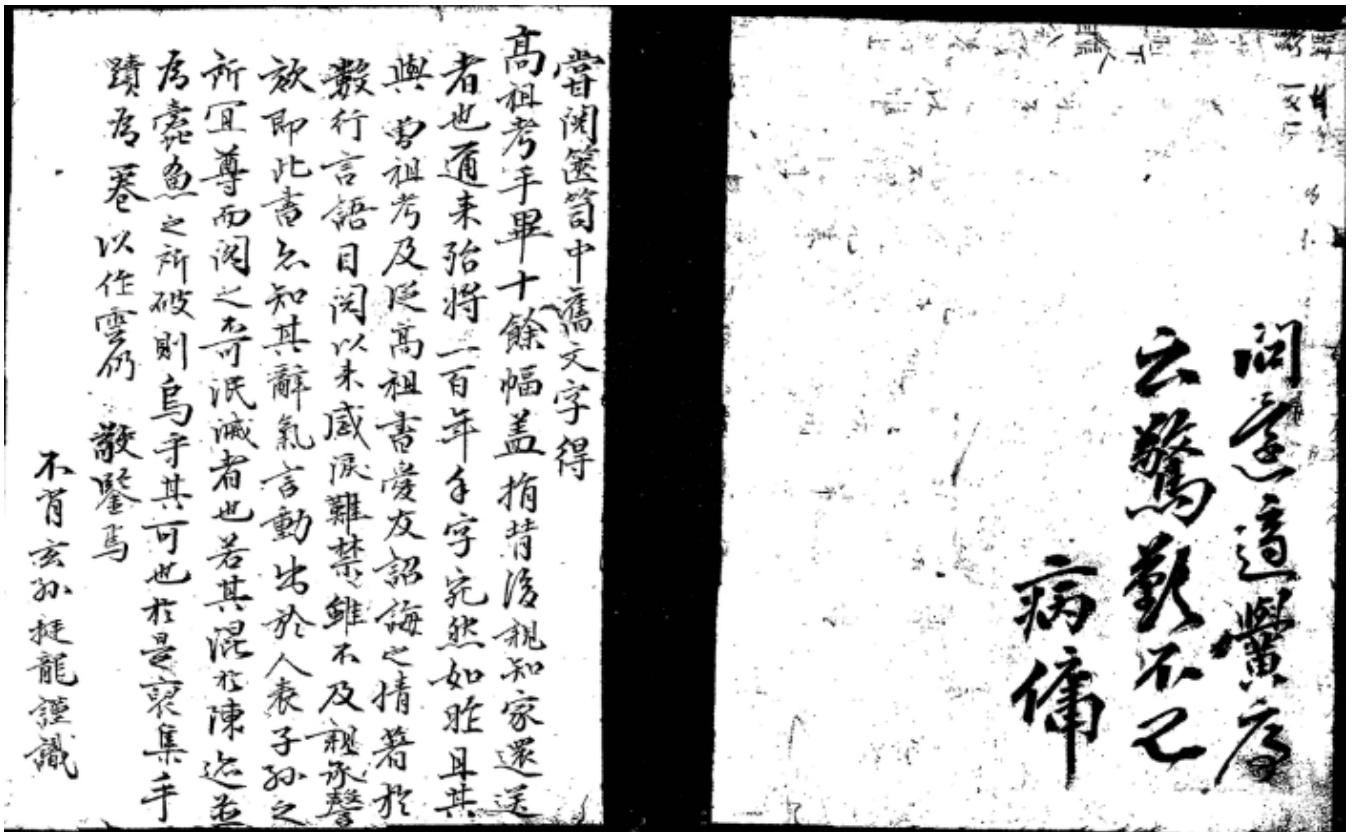 問意適黌序
云驚歎不已
病傭
嘗閱篋笥中舊文字得
高祖考手畢十餘幅盖捐背後親知家還送
者也邇来殆將一百年手字宛然如昨且其
與曾祖考及從高祖書愛友詔誨之情著於
數行言語目閱以来感淚難禁雖不及親承謦
欬即此書怎知其辭氣言動出於人表子孫之
所冝尊而閣之不可泯滅者也若其混於陳迹並
爲蠹魚之所破則烏乎其可也於是裒集手
蹟爲一卷以作雲仍敬鑒焉
不肖玄孫挺龍謹識